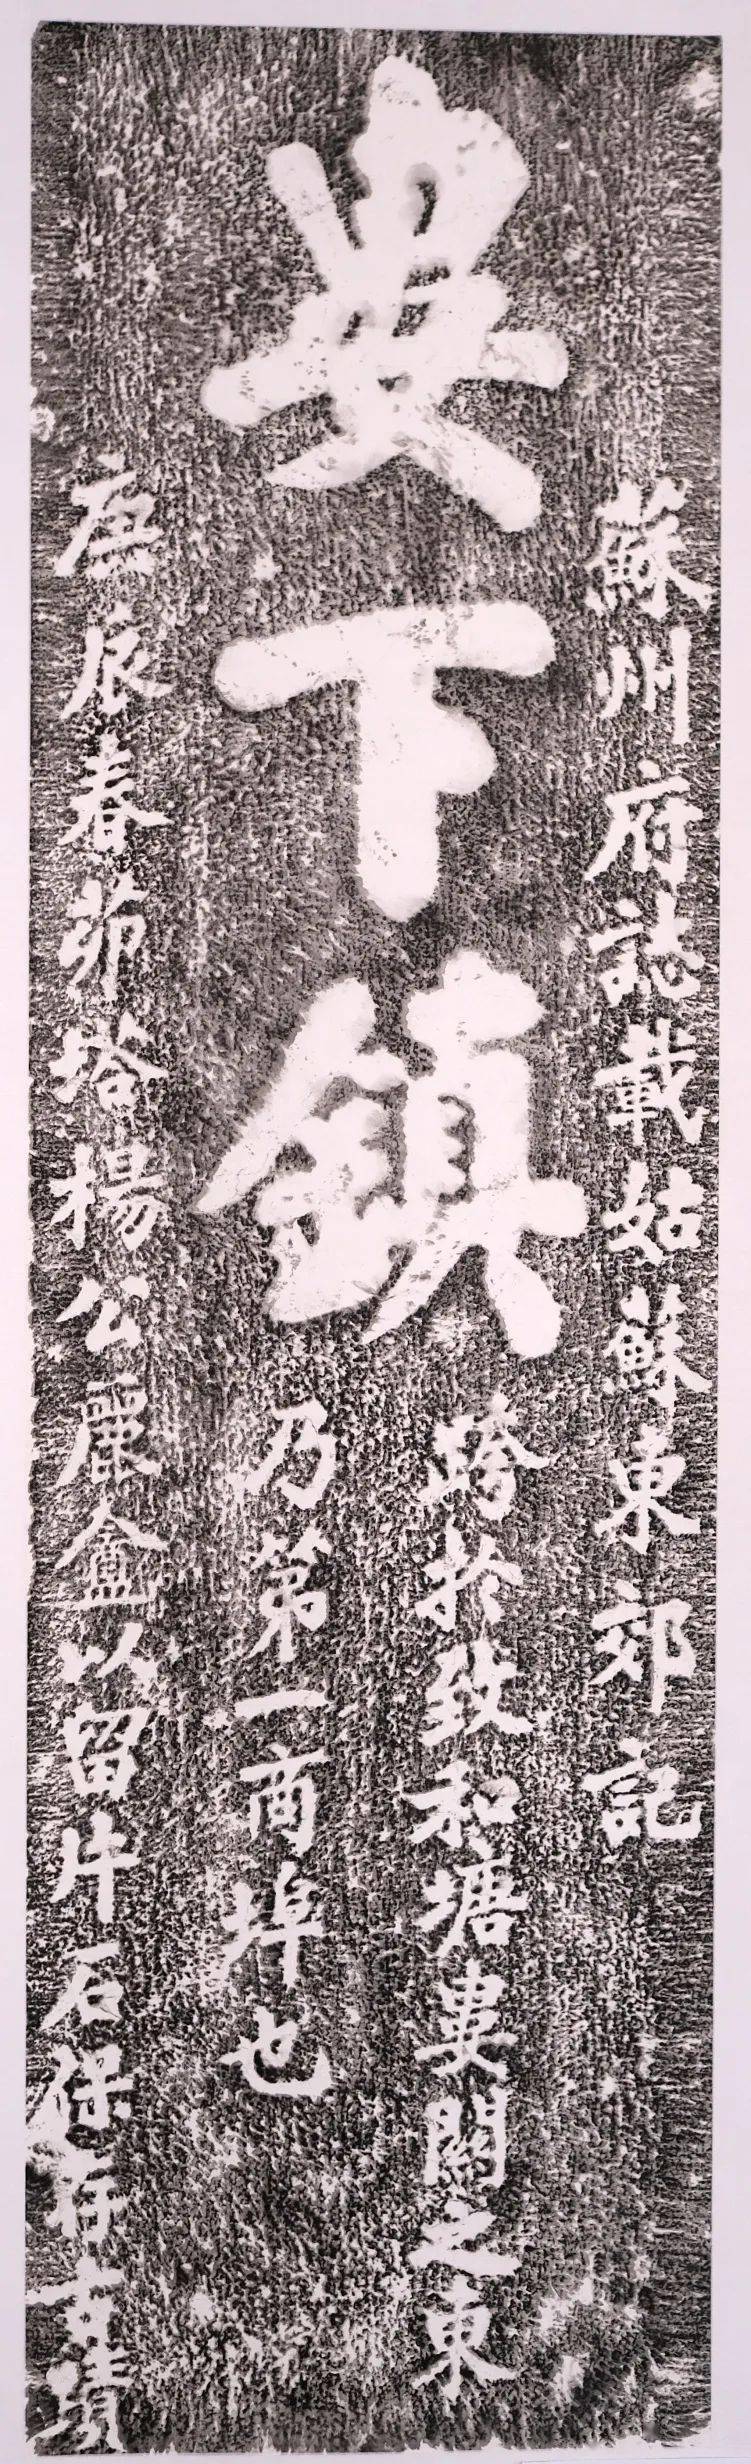 蘇州府誌載姑蘇東郊記
婁下鎮
跨於致和塘婁關之東
乃第一商埠也
庚辰春茆塔楊公麗盦以留片石保存古蹟